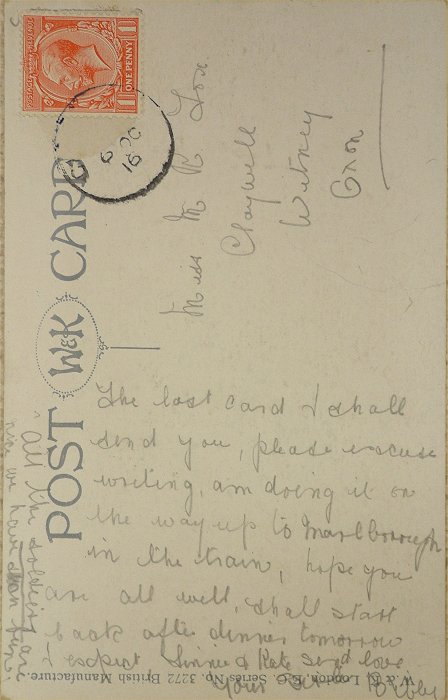 POSTAGE REVENUE
1 ONE PENNY 1
6 OC
16
POST W&K CARD
Miss M R Fox
Claywell
Witney
Oxon
The last card I shall
send you, please excuse
writing, am doing it on
the way up to Marlborough
in the train, hope you
are all well, shall start
back after dinner tomorrow
I expect & Kate send love
Your
All the soldiers are
nice we have seen
W. & K. London E.C. Series No. 3272 British Manufacture.